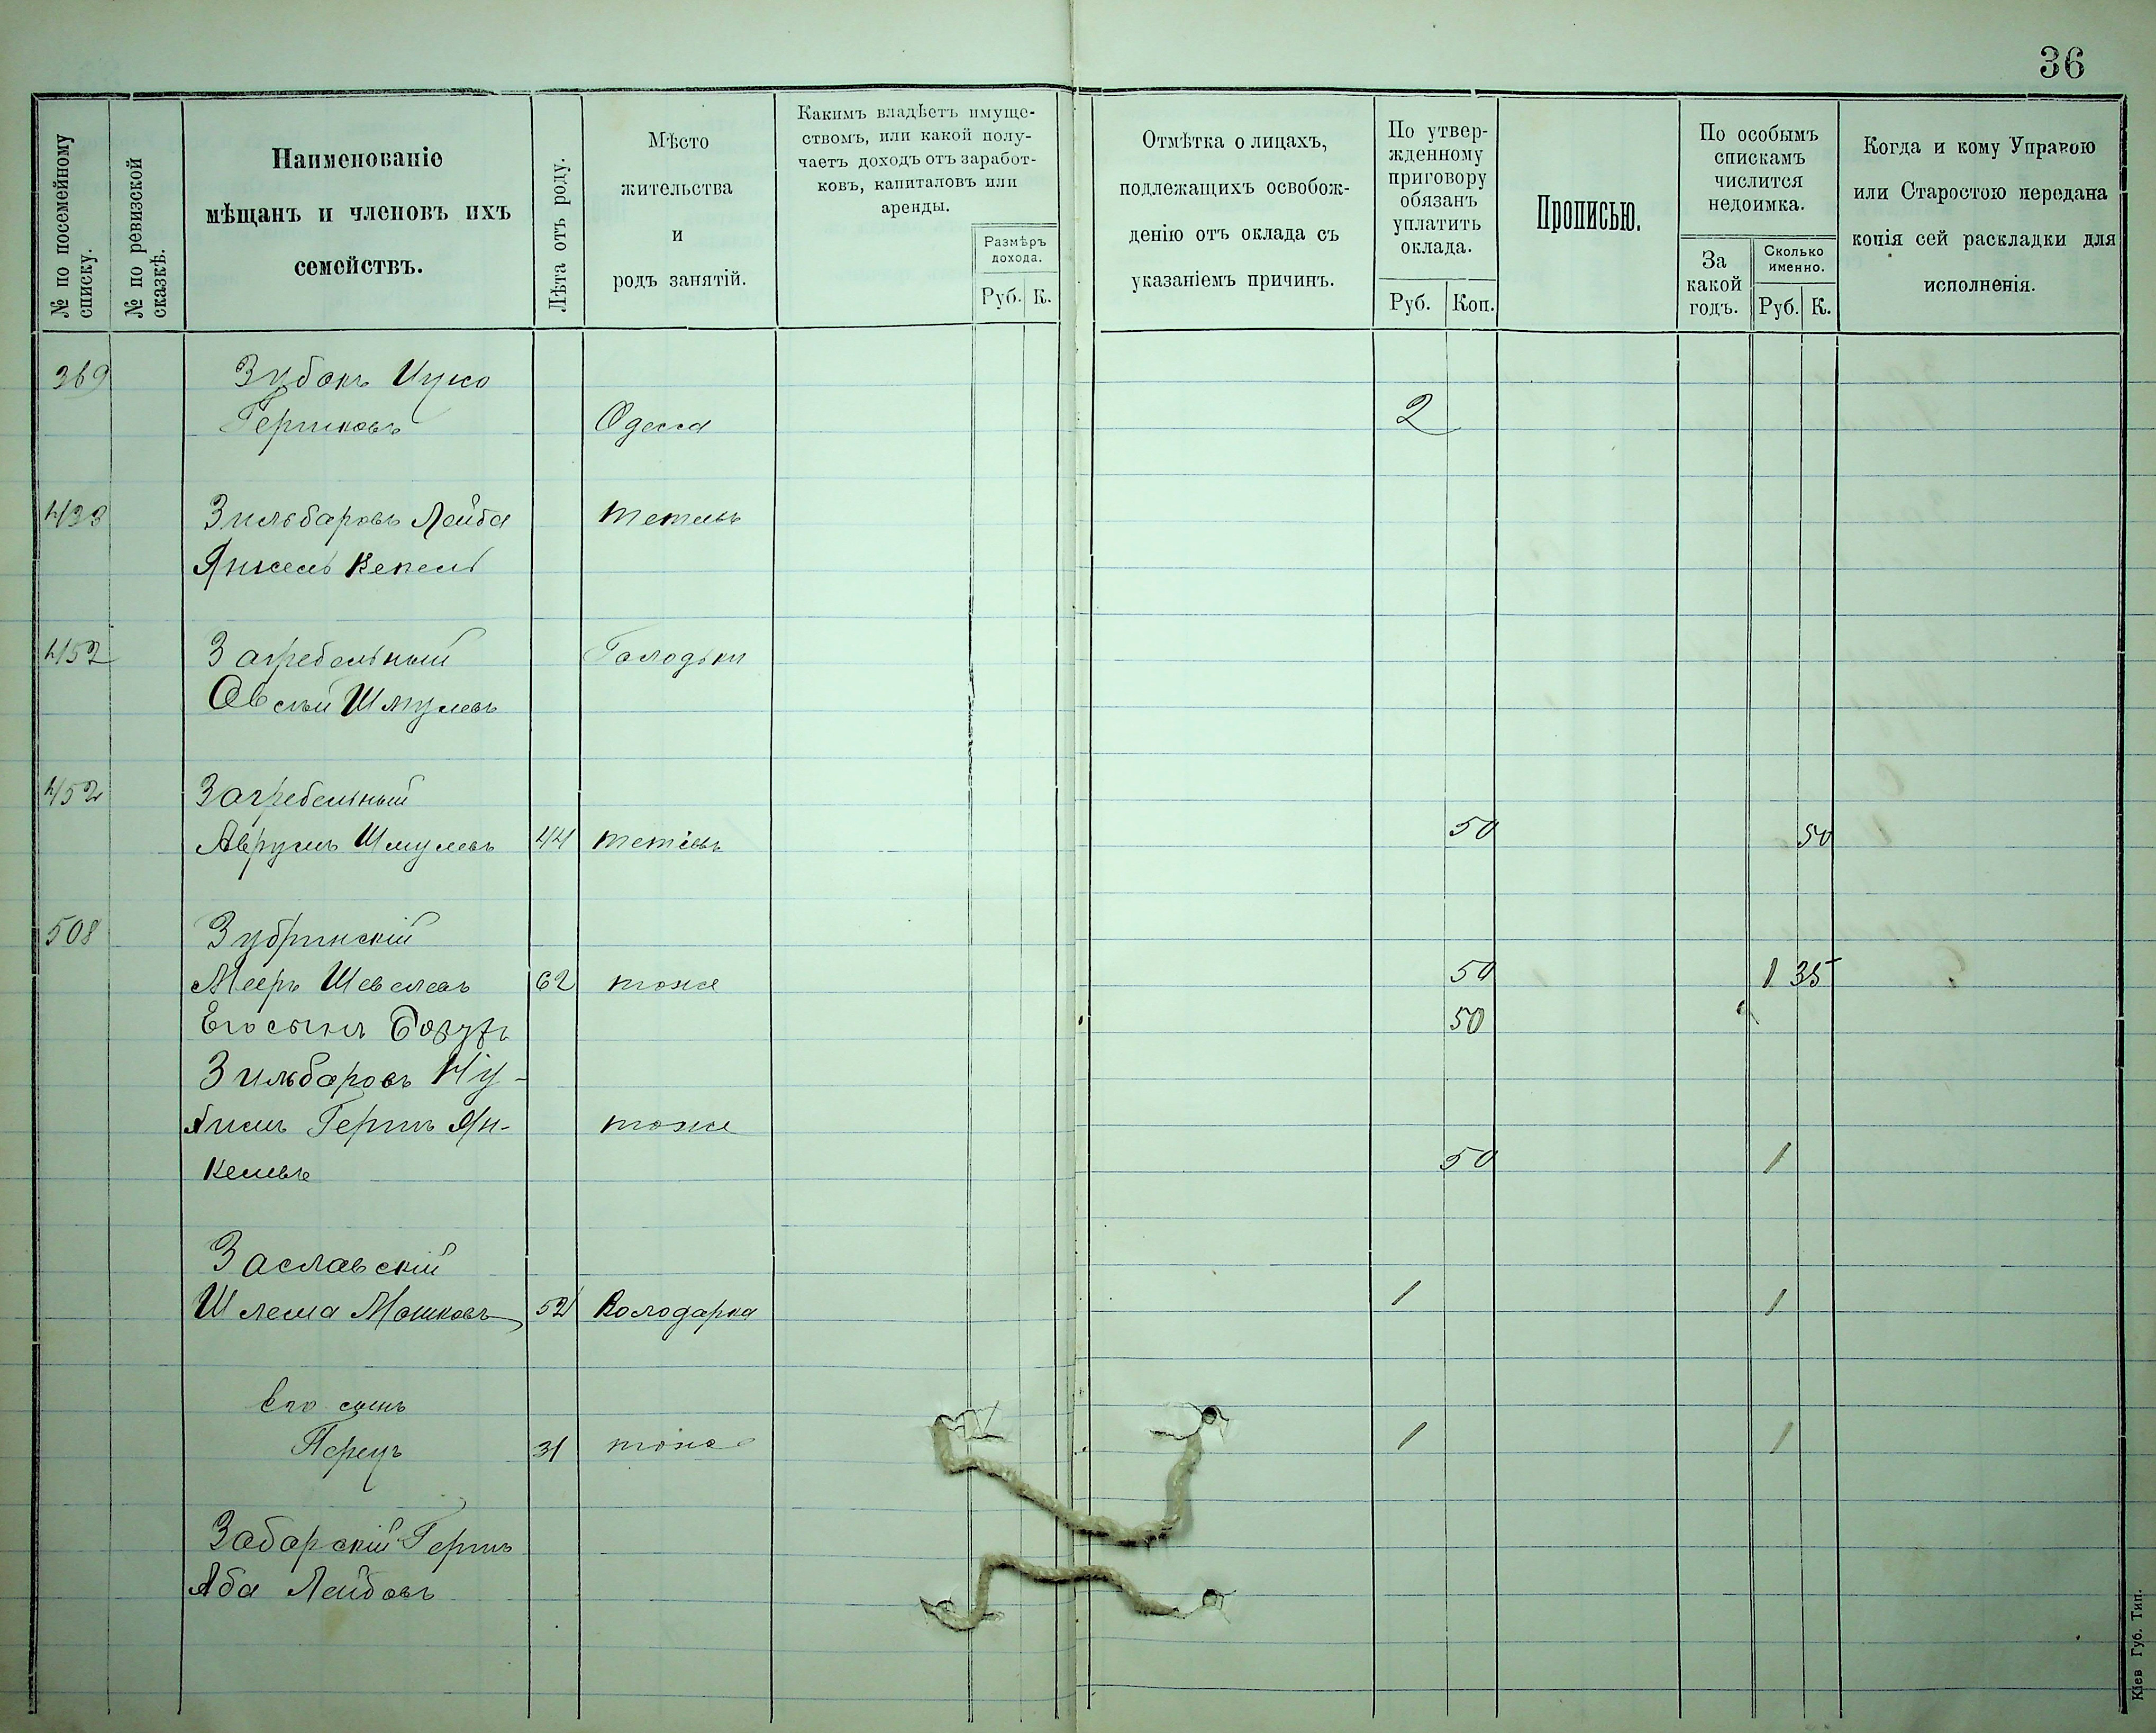 36
№ по посемейному списку.
№ по ревизской сказкѣ.
Наименованіе
мѣщанъ и членовъ ихъ
семействъ.
Лѣта отъ роду.
Мѣсто
жительства
и
родъ занятій.
Какимъ владѣетъ имуще-
ствомъ, или какой полу-
чаетъ доходъ отъ заработ-
ковъ, капиталовъ или
аренды.
Размѣръ
дохода.
Руб. К.
Отмѣтка о лицахъ,
подлежащихъ освобож-
денію отъ оклада съ
указаніемъ причинъ.
По утвер-
жденному
приговору
обязанъ
уплатить
оклада.
Руб. Коп.
Прописью.
По особымъ
спискамъ
числится
недоимка.
За
какой
годъ.
Сколько
именно.
Руб. К.
Когда и кому Управою
или Старостою передана
копія сей раскладки для
исполненія.
369 Зубокъ Ицко
Гершковъ Одесса 2
433 Зильбаровъ Лейба
Тетіевъ
452 Загребельный Голодьки
Овсій Шмулевъ
452 Загребельный
Аврумъ Шмулевъ 44 Тетіевъ 50 50
508 Зубринскій
Мееръ Шевелевъ 62 тоже 50 1 35
Его сынъ Борухъ 50
Зильбаровъ Ну-
химъ Гершъ Ян-
тоже
келевъ 50 1
Заславскій
Шлема Мошковъ 52 Володарка 1 1
Его сынъ
Перецъ 31 тоже 1 1
Заборскій Гершъ
Аба Лейбовъ
Кіев Губ. Тип.